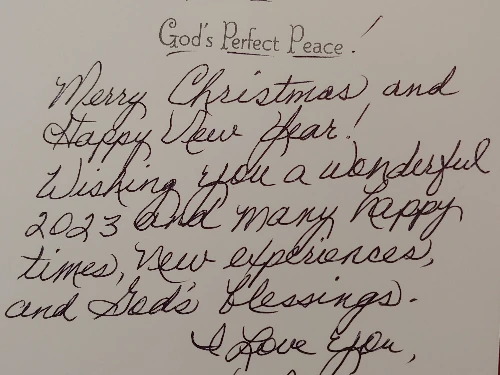 God's Perfect Peace!
Merry Christmas and
Happy New Year!
Wishing you a wonderful
2023 and many happy
times, new experiences,
and God's blessings.
I Love You,